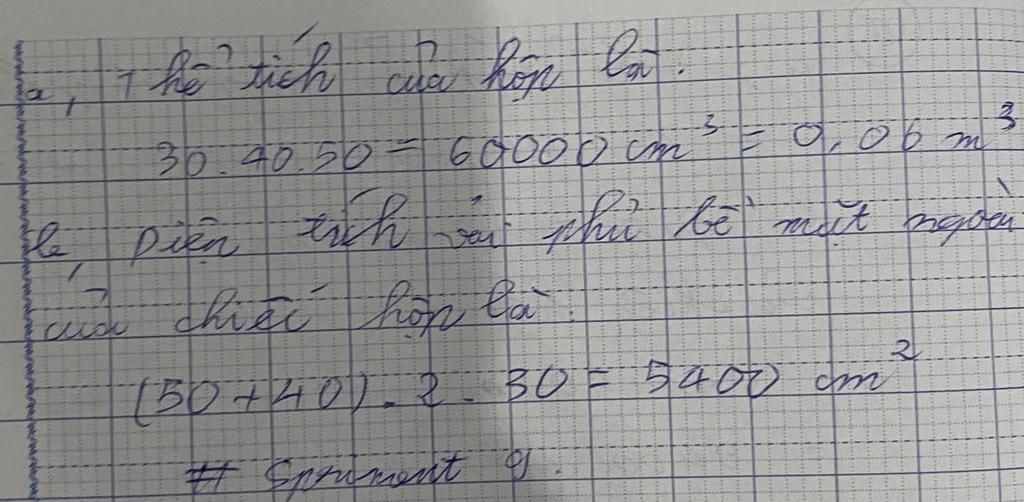 a, Thể tích của hộp là.
30.40.50 = 60000 cm³ = 0,06 m³
b, Diện tích vải phủ bề mặt ngoài
của chiếc hộp là.
(50+40).2.30 = 5400 cm²
#